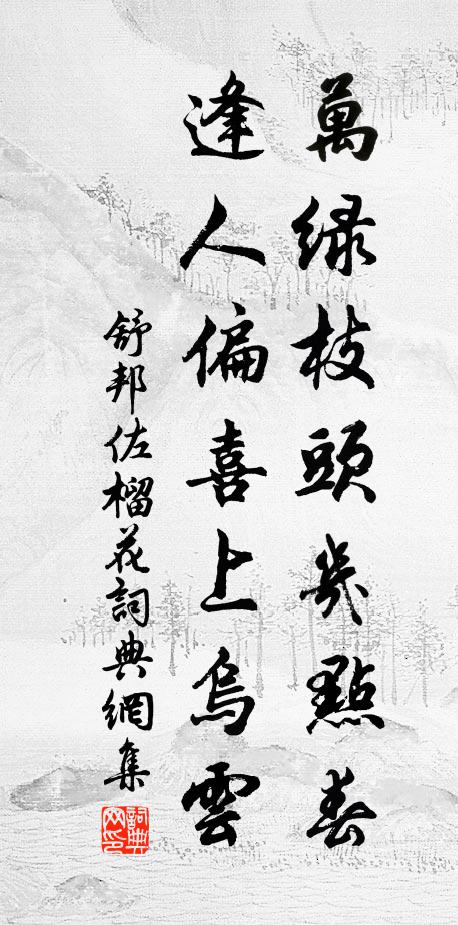 萬緑枝頭幾點春
逢人偏喜上烏雲
舒邦佐榴花詞典網集
詞典網印